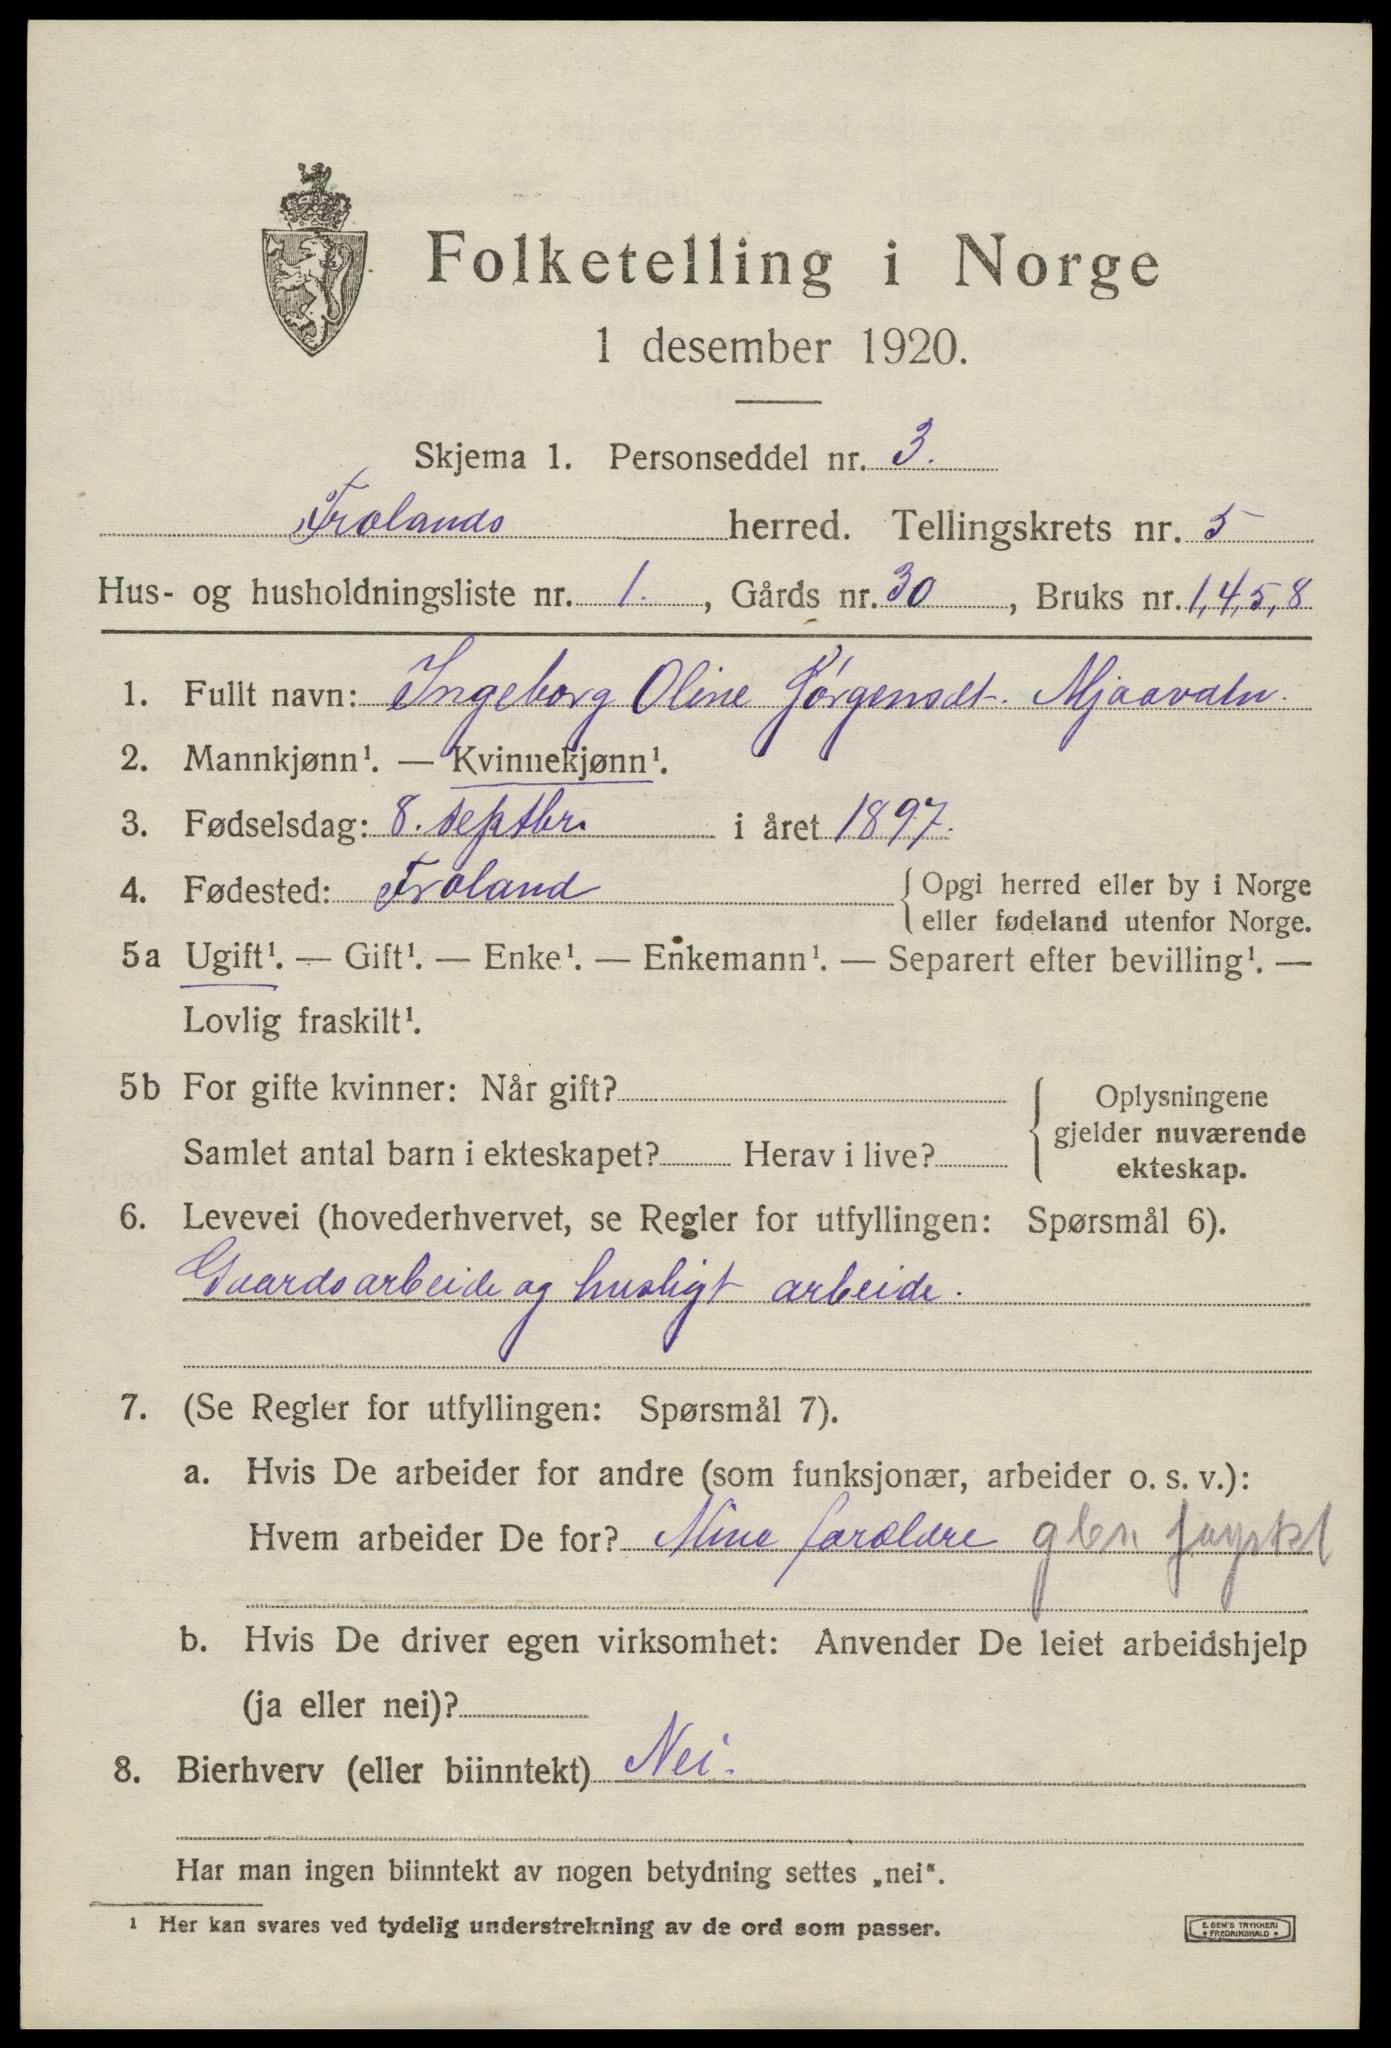 Folketelling i Norge
1 desember 1920.
Skjema 1. Personseddel nr. 3.
Frolands herred. Tellingskrets nr. 5
Hus- og husholdningsliste nr. 1., Gårds nr. 30, Bruks nr. 1,4,5,8
1. Fullt navn: Ingeborg Oline Jørgensdt. Mjaavatn.
2. Mannkjønn¹. — Kvinnekjønn¹.
3. Fødselsdag: 8. septbr. i året 1897.
4. Fødested: Froland {Opgi herred eller by i Norge
eller fødeland utenfor Norge.
5a Ugift¹. — Gift¹. — Enke¹. — Enkemann¹. — Separert efter bevilling¹. —
Lovlig fraskilt¹.
5b For gifte kvinner: Når gift?
Samlet antal barn i ekteskapet? Herav i live?
Oplysningene
gjelder nuværende
ekteskap.
6. Levevei (hovederhvervet, se Regler for utfyllingen: Spørsmål 6).
Gaardsarbeide og husligt arbeide.
7. (Se Regler for utfyllingen: Spørsmål 7).
a. Hvis De arbeider for andre (som funksjonær, arbeider o. s. v.):
Hvem arbeider De for? Mine forældre
b. Hvis De driver egen virksomhet: Anvender De leiet arbeidshjelp
(ja eller nei)?
8. Bierhverv (eller biinntekt) Nei.
Har man ingen biinntekt av nogen betydning settes „nei“.
¹ Her kan svares ved tydelig understrekning av de ord som passer.
E. SEM'S TRYKKERI
• FREDRIKSHALD •